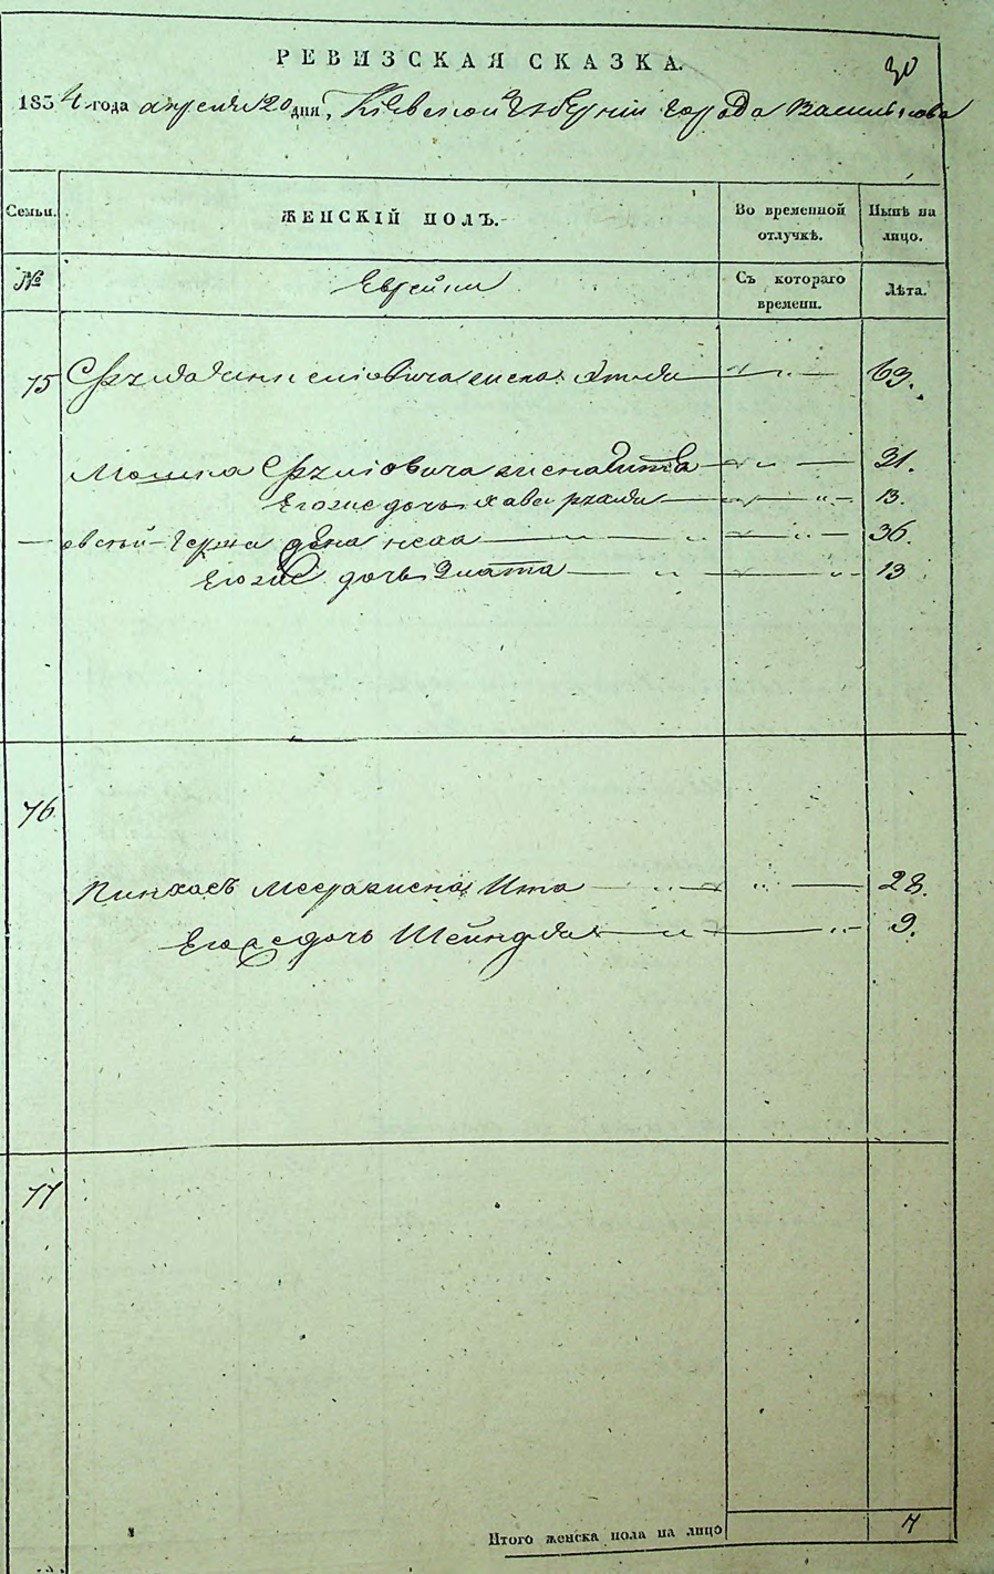 РЕВИЗСКАЯ СКАЗКА.
30
1854 года апреля 20 дня, Киевской Губернии города Василькова
Семьи.
ЖЕНСКІЙ ПОЛЪ.
Во временной отлучкѣ.
Нынѣ на лицо.
№
Еврейки
Съ котораго времени.
Лѣта.
75 Сруля жена 63.
Мошка Срулiовича жена 31.
Его же дочь 13.
жена 36.
Его же дочь Злата 13
76
Пинхасъ жена Ита 28.
Его же дочь Шейндля 9.
77
Итого женска пола на лицо 7